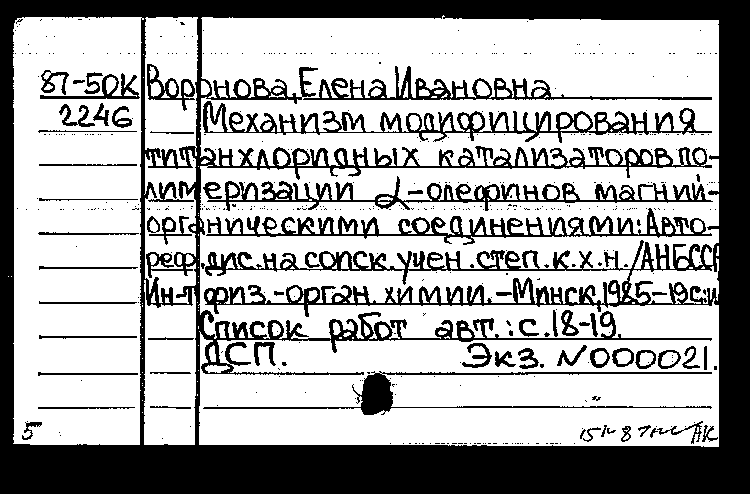 87-50К Воронова, Елена Ивановна.
2246 Механизм модифицирования
титанхлоридных катализаторов по-
лимеризации α-олефинов магний-
органическими соединениями: Авто-
реф. дис. на соиск. учен. степ. к.х.н. / АН БССР
Ин-т физ.-орган. химии. - Минск, 1985.-19 с.: и
Список работ авт.: с. 18-19.
ДСП. Экз. N 000021.
5